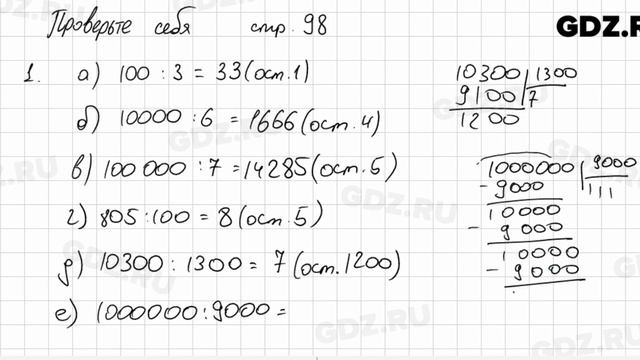 Проверьте себя стр. 98
GDZ.RU
1. а) 100 : 3 = 33 (ост. 1)
б) 10000 : 6 = 1666 (ост. 4)
в) 100 000 : 7 = 14285 (ост. 5)
г) 805 : 100 = 8 (ост. 5)
д) 10300 : 1300 = 7 (ост. 1200)
е) 1000000 : 9000 =
10300 1300
9100 7
1200
1000000 9000
- 9000 111
10000
- 9000
10000
- 9000